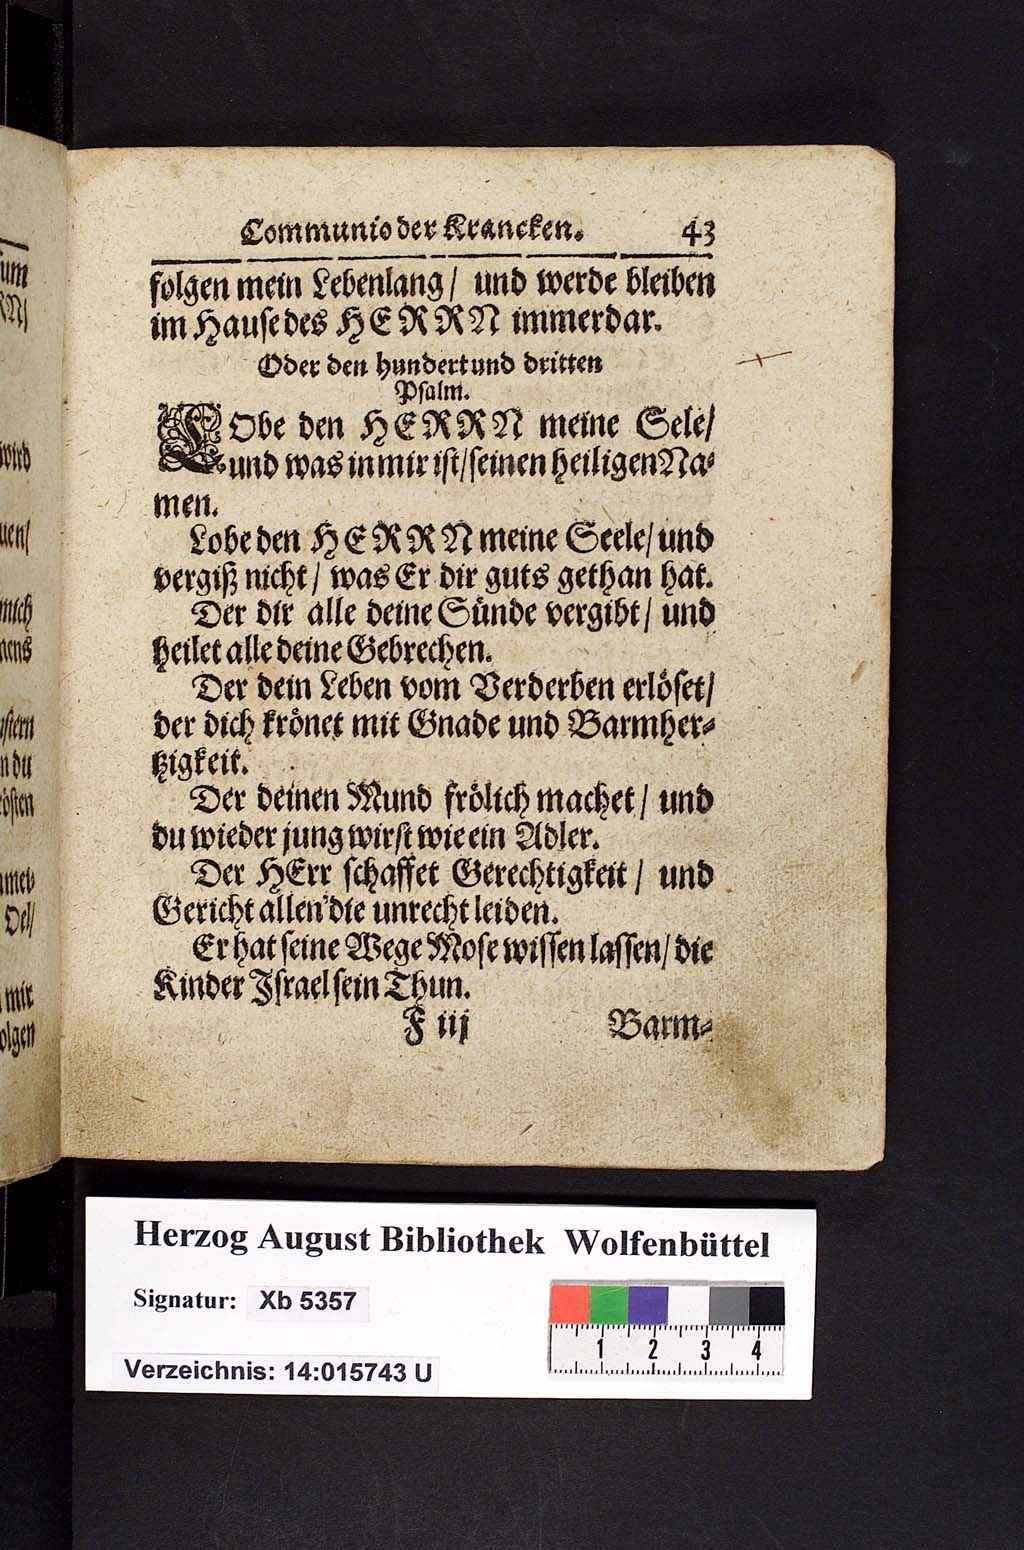 Communio der Krancken. 43
folgen mein Lebenlang / und werde bleiben
im Hause des HERRN immerdar.
Oder den hundert und dritten
Psalm.
LObe den HERRN meine Sele /
und was in mir ist / seinen heiligen Na-
men.
Lobe den HERRN meine Seele / und
vergiß nicht / was Er dir guts gethan hat.
Der dir alle deine Sünde vergibt / und
heilet alle deine Gebrechen.
Der dein Leben vom Verderben erlöset /
der dich krönet mit Gnade und Barmher-
tzigkeit.
Der deinen Mund frölich machet / und
du wieder jung wirst wie ein Adler.
Der HErr schaffet Gerechtigkeit / und
Gericht allen die unrecht leiden.
Er hat seine Wege Mose wissen lassen / die
Kinder Israel sein Thun.
F iij Barm-
wird
mich
du
mir
Herzog August Bibliothek Wolfenbüttel
Signatur: Xb 5357
Verzeichnis: 14:015743 U
1 2 3 4